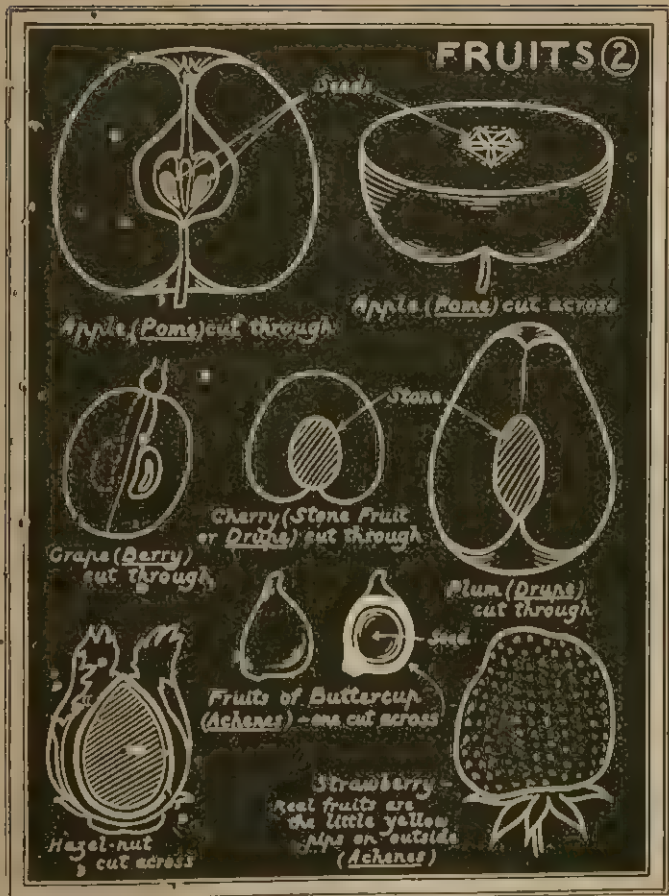 FRUITS 2
Seeds
Apple (Pome) cut through
Apple (Pome) cut across
Stone
Grape (Berry)
cut through
Cherry (Stone Fruit
or Drupe) cut through
Plum (Drupe)
cut through
Seed
Fruits of Buttercup
(Achenes) - one cut across
Hazel-nut
cut across
Strawberry -
Real fruits are
the little yellow
pips on outside
(Achenes)